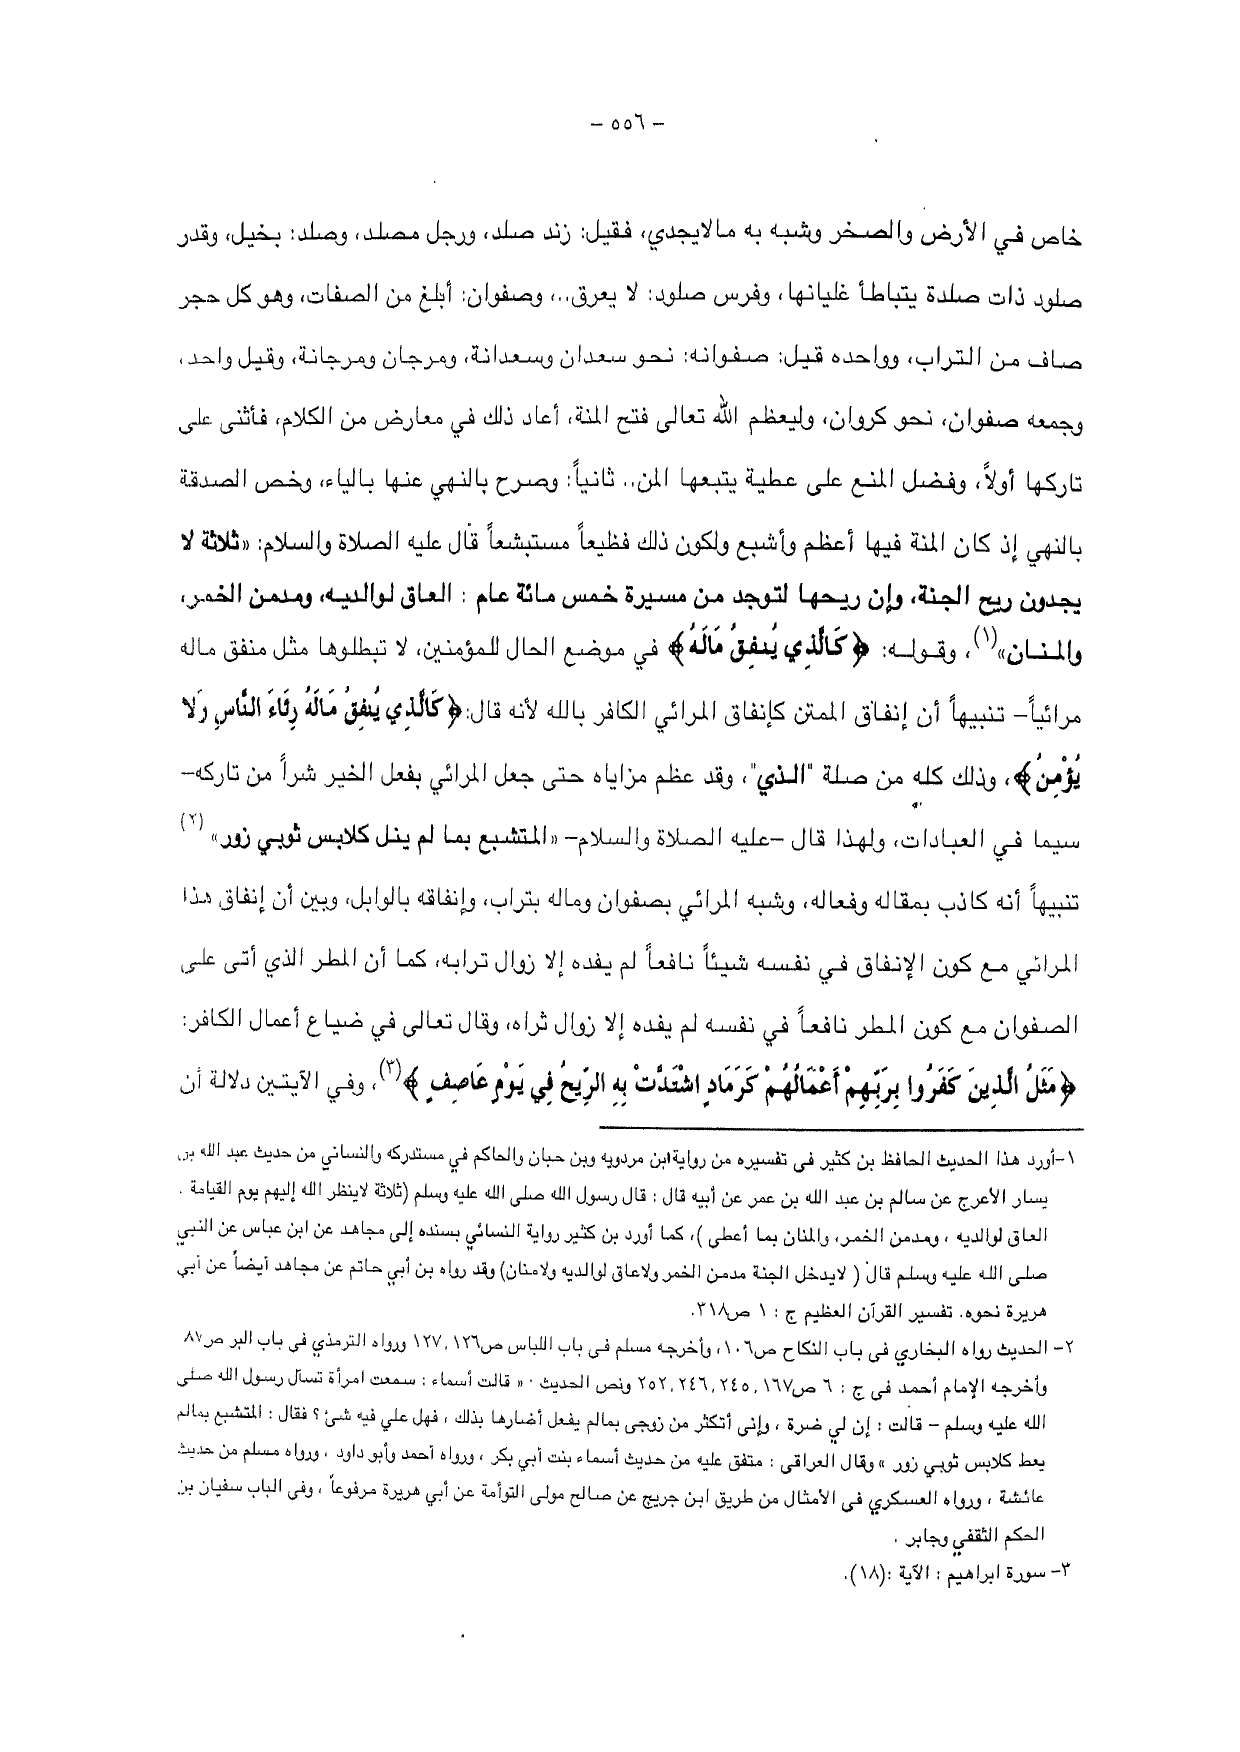 – ٥٥٦ –
خاص في الأرض والصخر وشبه به مالايجدي، فقيل: زند صلد، ورجل مصلد، وصلد: بخيل، وقدر
صلود ذات صلدة يتباطأ غليانها، وفرس صلود: لا يعرق..، وصفوان: أبلغ من الصفات، وهو كل حجر
صاف من التراب، وواحده قيل: صفوانه: نحو سعدان وسعدانة، ومرجان ومرجانة، وقيل واحد،
وجمعه صفوان، نحو كروان، وليعظم الله تعالى فتح المنة، أعاد ذلك في معارض من الكلام، فأثنى على
تاركها أولاً، وفضل المنع على عطية يتبعها المن.. ثانياً: وصرح بالنهي عنها بالياء، وخص الصدقة
بالنهي إذ كان المنة فيها أعظم وأشبع ولكون ذلك فظيعاً مستبشعاً قال عليه الصلاة والسلام: «ثلاثة لا
يجدون ريح الجنة، وإن ريحها لتوجد من مسيرة خمس مائة عام : العاق لوالديه، ومدمن الخمر،
والمنان»(١)، وقوله: ﴿كَالَّذِي يُنفِقُ مَالَهُ﴾ في موضع الحال للمؤمنين، لا تبطلوها مثل منفق ماله
مرائياً– تنبيهاً أن إنفاق الممتن كإنفاق المرائي الكافر بالله لأنه قال:﴿كَالَّذِي يُنفِقُ مَالَهُ رِئَاءَ النَّاسِ وَلا
يُؤْمِنُ﴾، وذلك كله من صلة "الذي"، وقد عظم مزاياه حتى جعل المرائي بفعل الخير شراً من تاركه–
سيما في العبادات، ولهذا قال –عليه الصلاة والسلام– «المتشبع بما لم ينل كلابس ثوبي زور» (٢)
تنبيهاً أنه كاذب بمقاله وفعاله، وشبه المرائي بصفوان وماله بتراب، وإنفاقه بالوابل، وبين أن إنفاق هذا
المرائي مع كون الإنفاق في نفسه شيئاً نافعاً لم يفده إلا زوال ترابه، كما أن المطر الذي أتى على
الصفوان مع كون المطر نافعاً في نفسه لم يفده إلا زوال ثراه، وقال تعالى في ضياع أعمال الكافر:
﴿مَثَلُ الَّذِينَ كَفَرُوا بِرَبِّهِمْ أَعْمَالُهُمْ كَرَمَادٍ اشْتَدَّتْ بِهِ الرِّيحُ فِي يَوْمٍ عَاصِفٍ﴾(٣)، وفي الآيتين دلالة أن
١–أورد هذا الحديث الحافظ بن كثير فى تفسيره من روايةابن مردويه وبن حبان والحاكم في مستدركه والنسائي من حديث عبد الله بن
يسار الأعرج عن سالم بن عبد الله بن عمر عن أبيه قال : قال رسول الله صلى الله عليه وسلم (ثلاثة لاينظر الله إليهم يوم القيامة .
العاق لوالديه ، ومدمن الخمر، والمنان بما أعطى )، كما أورد بن كثير رواية النسائي بسنده إلى مجاهد عن ابن عباس عن النبي
صلى الله عليه وسلم قال ( لايدخل الجنة مدمن الخمر ولاعاق لوالديه ولامنان) وقد رواه بن أبي حاتم عن مجاهد أيضاً عن أبي
هريرة نحوه. تفسير القرآن العظيم ج : ١ ص٣١٨.
٢– الحديث رواه البخاري فى باب النكاح ص١٠٦، وأخرجه مسلم فى باب اللباس ص١٢٦, ١٢٧ ورواه الترمذي فى باب البر ص٨٧
وأخرجه الإمام أحمد فى ج : ٦ ص١٦٧, ٢٤٥, ٢٤٦, ٢٥٢ ونص الحديث · « قالت أسماء : سمعت امرأة تسأل رسول الله صلى
الله عليه وسلم – قالت : إن لي ضرة ، وإنى أتكثر من زوجى بمالم يفعل أضارها بذلك ، فهل علي فيه شئ؟ فقال : المتشبع بمالم
يعط كلابس ثوبي زور » وقال العراقي : متفق عليه من حديث أسماء بنت أبي بكر ، ورواه أحمد وأبو داود ، ورواه مسلم من حديث
عائشة ، ورواه العسكري فى الأمثال من طريق ابن جريج عن صالح مولى التوأمة عن أبي هريرة مرفوعاً ، وفى الباب سفيان بن
الحكم الثقفي وجابر .
٣– سورة ابراهيم : الآية :(١٨).